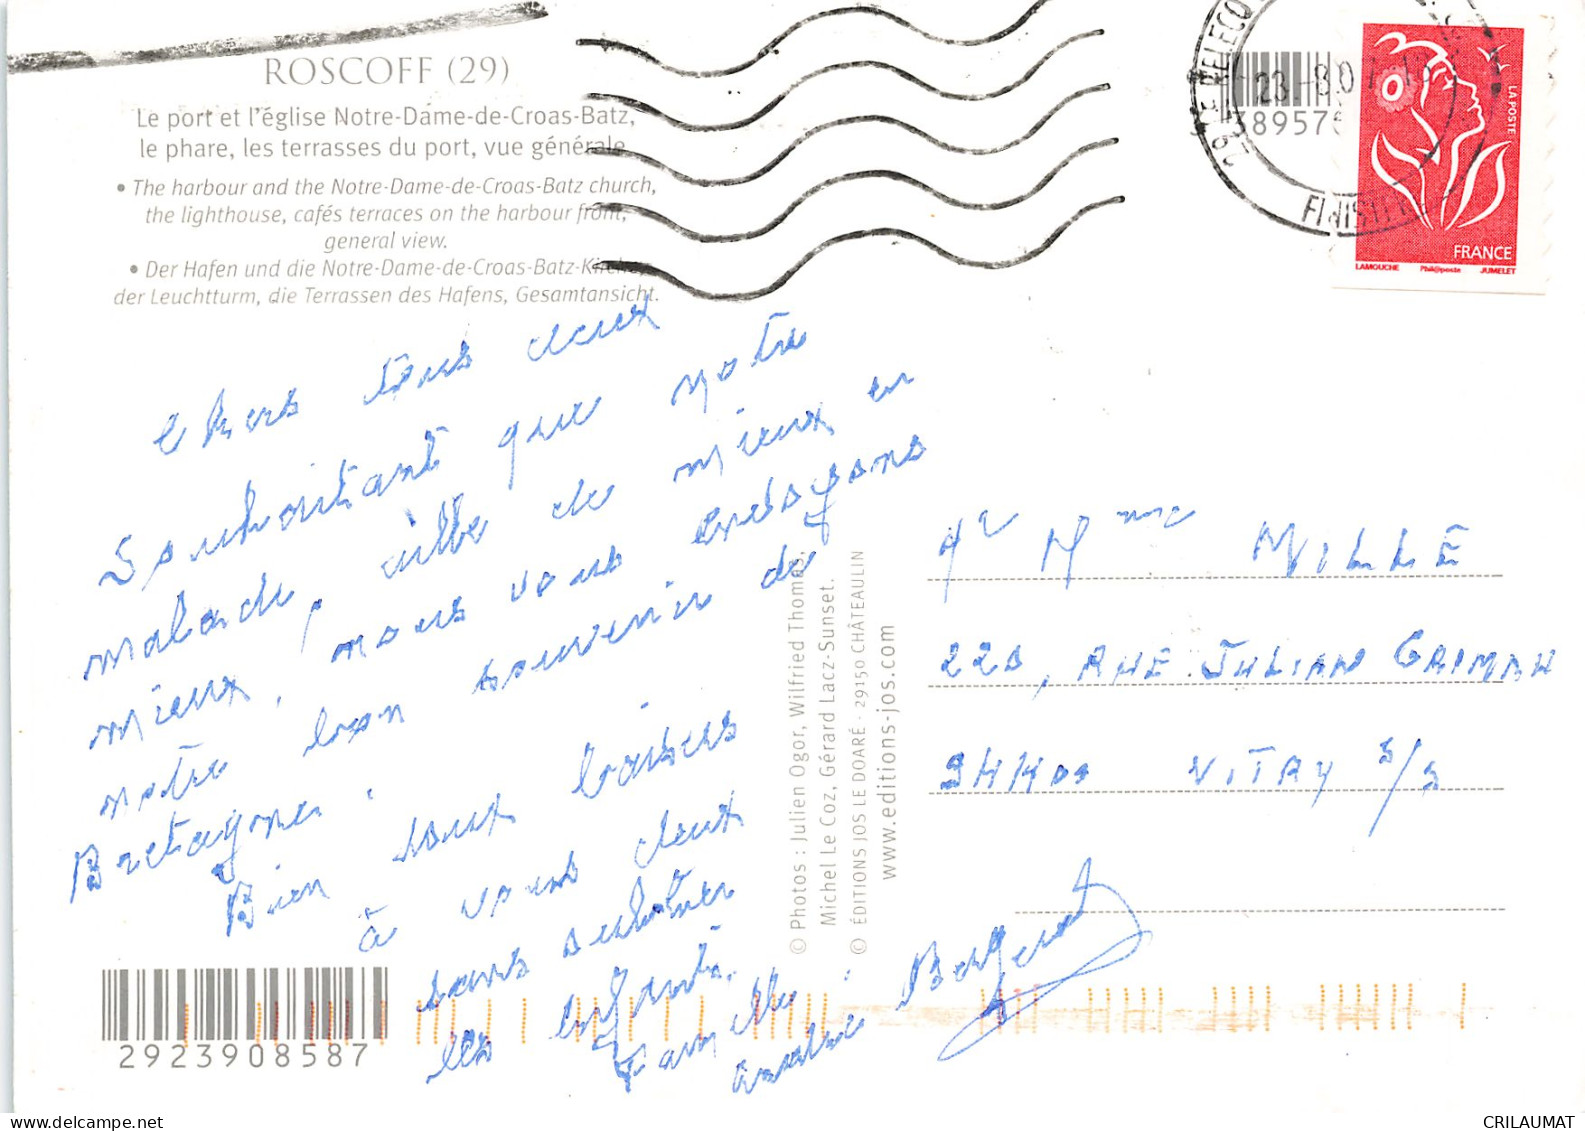 ROSCOFF (29)
Le port et l'église Notre-Dame-de-Croas-Batz,
le phare, les terrasses du port, vue générale
• The harbour and the Notre-Dame-de-Croas-Batz church,
the lighthouse, cafés terraces on the harbour front,
general view.
• Der Hafen und die Notre-Dame-de-Croas-Batz-Kirche,
der Leuchtturm, die Terrassen des Hafens, Gesamtansicht.
FINISTERE
38957
LA POSTE
FRANCE
LAMOUCHE Phil@poste JUMELET
Chers tous deux
Souhaitant que notre
malade, aille de mieux en
mieux, nous vous envoyons
notre bon souvenir de
Bretagne.
Bien doux baisers
à vous deux
sans oublier
les enfants.
Famille
© Photos : Julien Ogor, Wilfried Thomas,
Michel Le Coz, Gérard Lacz-Sunset.
© ÉDITIONS JOS LE DOARÉ - 29150 CHÂTEAULIN
www.editions-jos.com
Mr Mme MILLE
220, RUE JULIAN GRIMAU
94400 VITRY S/S
2923908587
CRILAUMAT